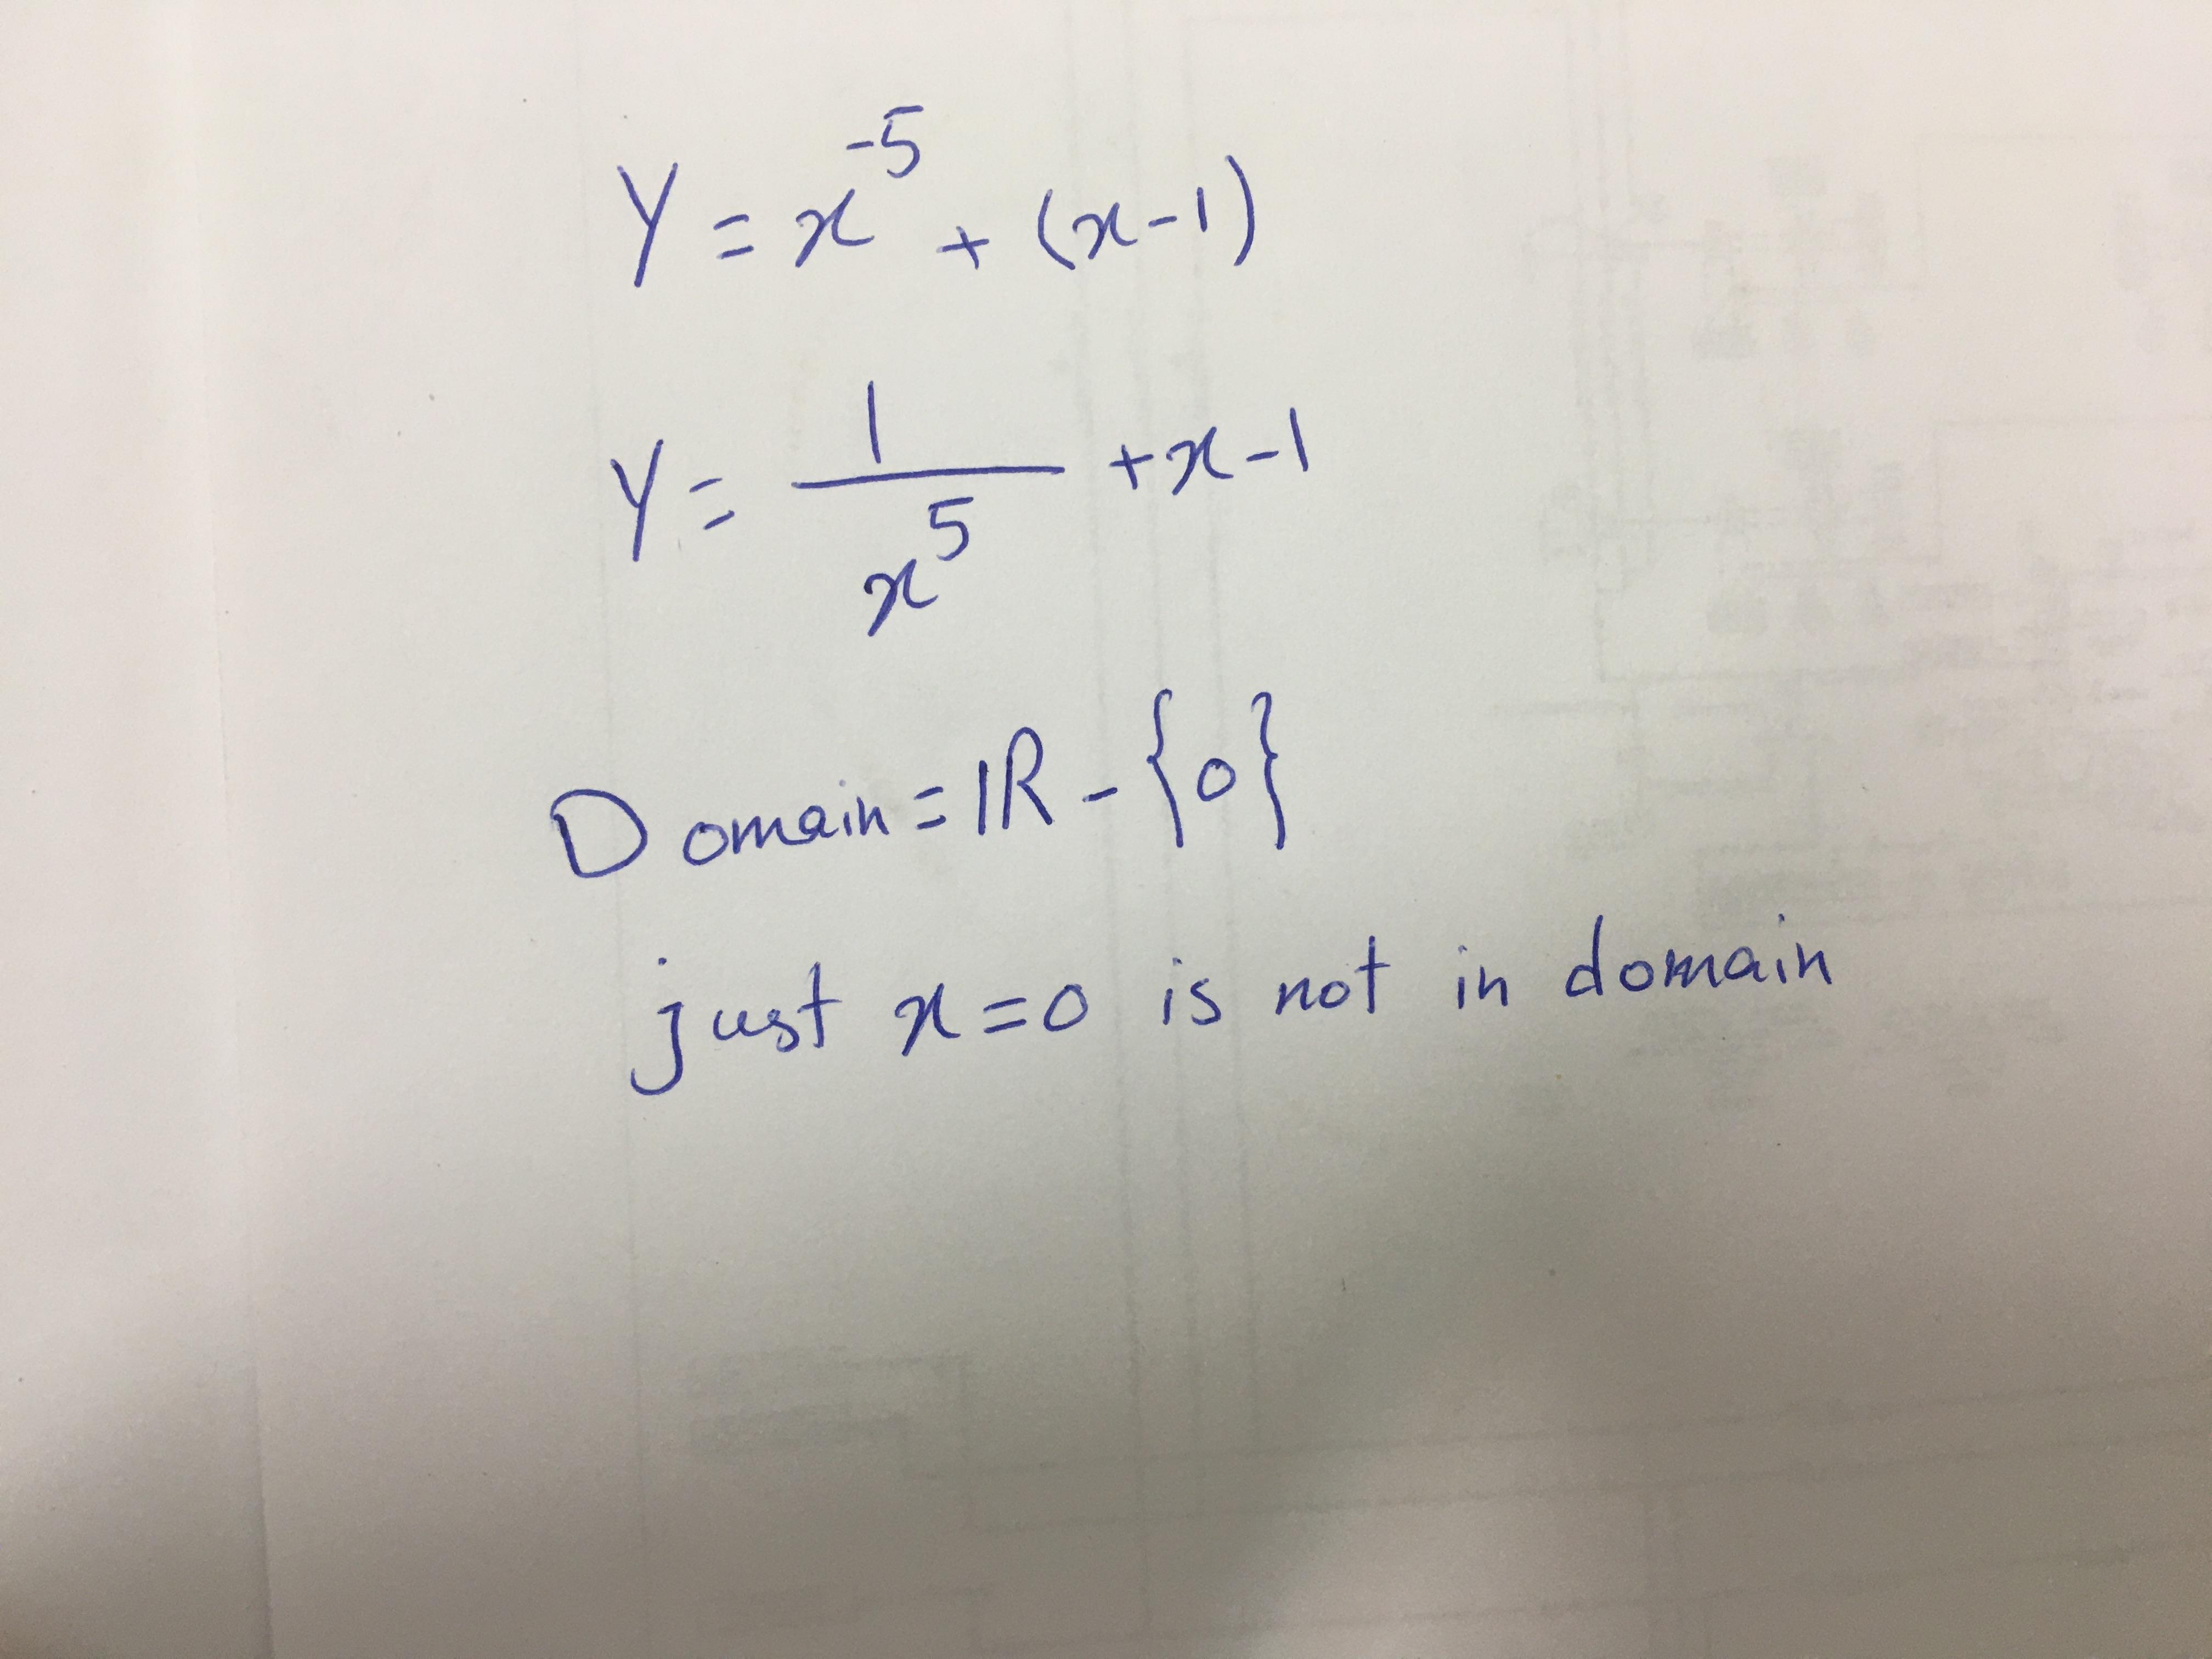 Y = x^-5 + (x-1)
Y = 1/x^5 + x-1
Domain = ℝ - {0}
just x=0 is not in domain